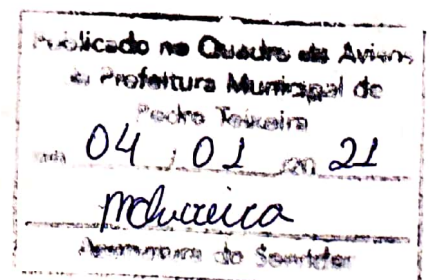 Publicado no Quadro de Avisos
da Prefeitura Municipal de
Pedro Teixeira
em 04 / 01 / 21
Assinatura do Servidor